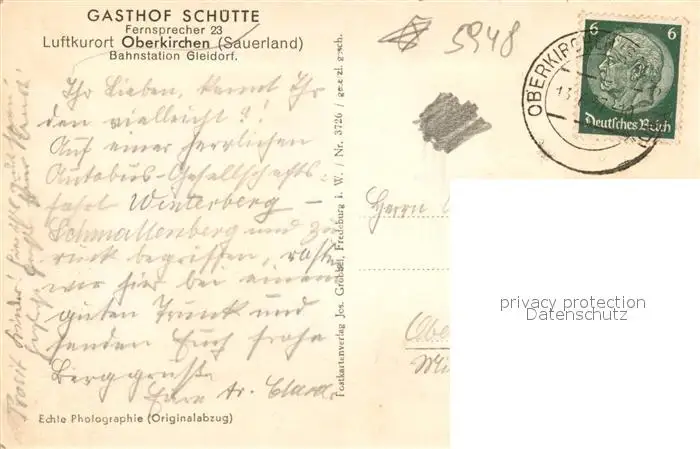 GASTHOF SCHÜTTE
Fernsprecher 23
Luftkurort Oberkirchen (Sauerland)
Bahnstation Gleidorf.
5948
6 6
Deutsches Reich
OBERKIRCHEN
Ihr Lieben, kennt Ihr
den vielleicht?!
Auf einer herrlichen
Autobus-Gesellschafts-
fahrt Winterberg –
Schmallenberg und zu-
rück begriffen, rasten
wir hier bei einem
guten Trunk und
senden Euch frohe
Berggrüße
Eure Clara.
Prosit Kinder!
Echte Photographie (Originalabzug)
Postkartenverlag Jos. Grobbel, Fredeburg i. W. / Nr. 3726 / gesetzl. gesch.
Herrn
privacy protection
Datenschutz